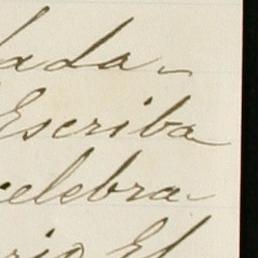 lada-
Escriba
celebra-
rio El